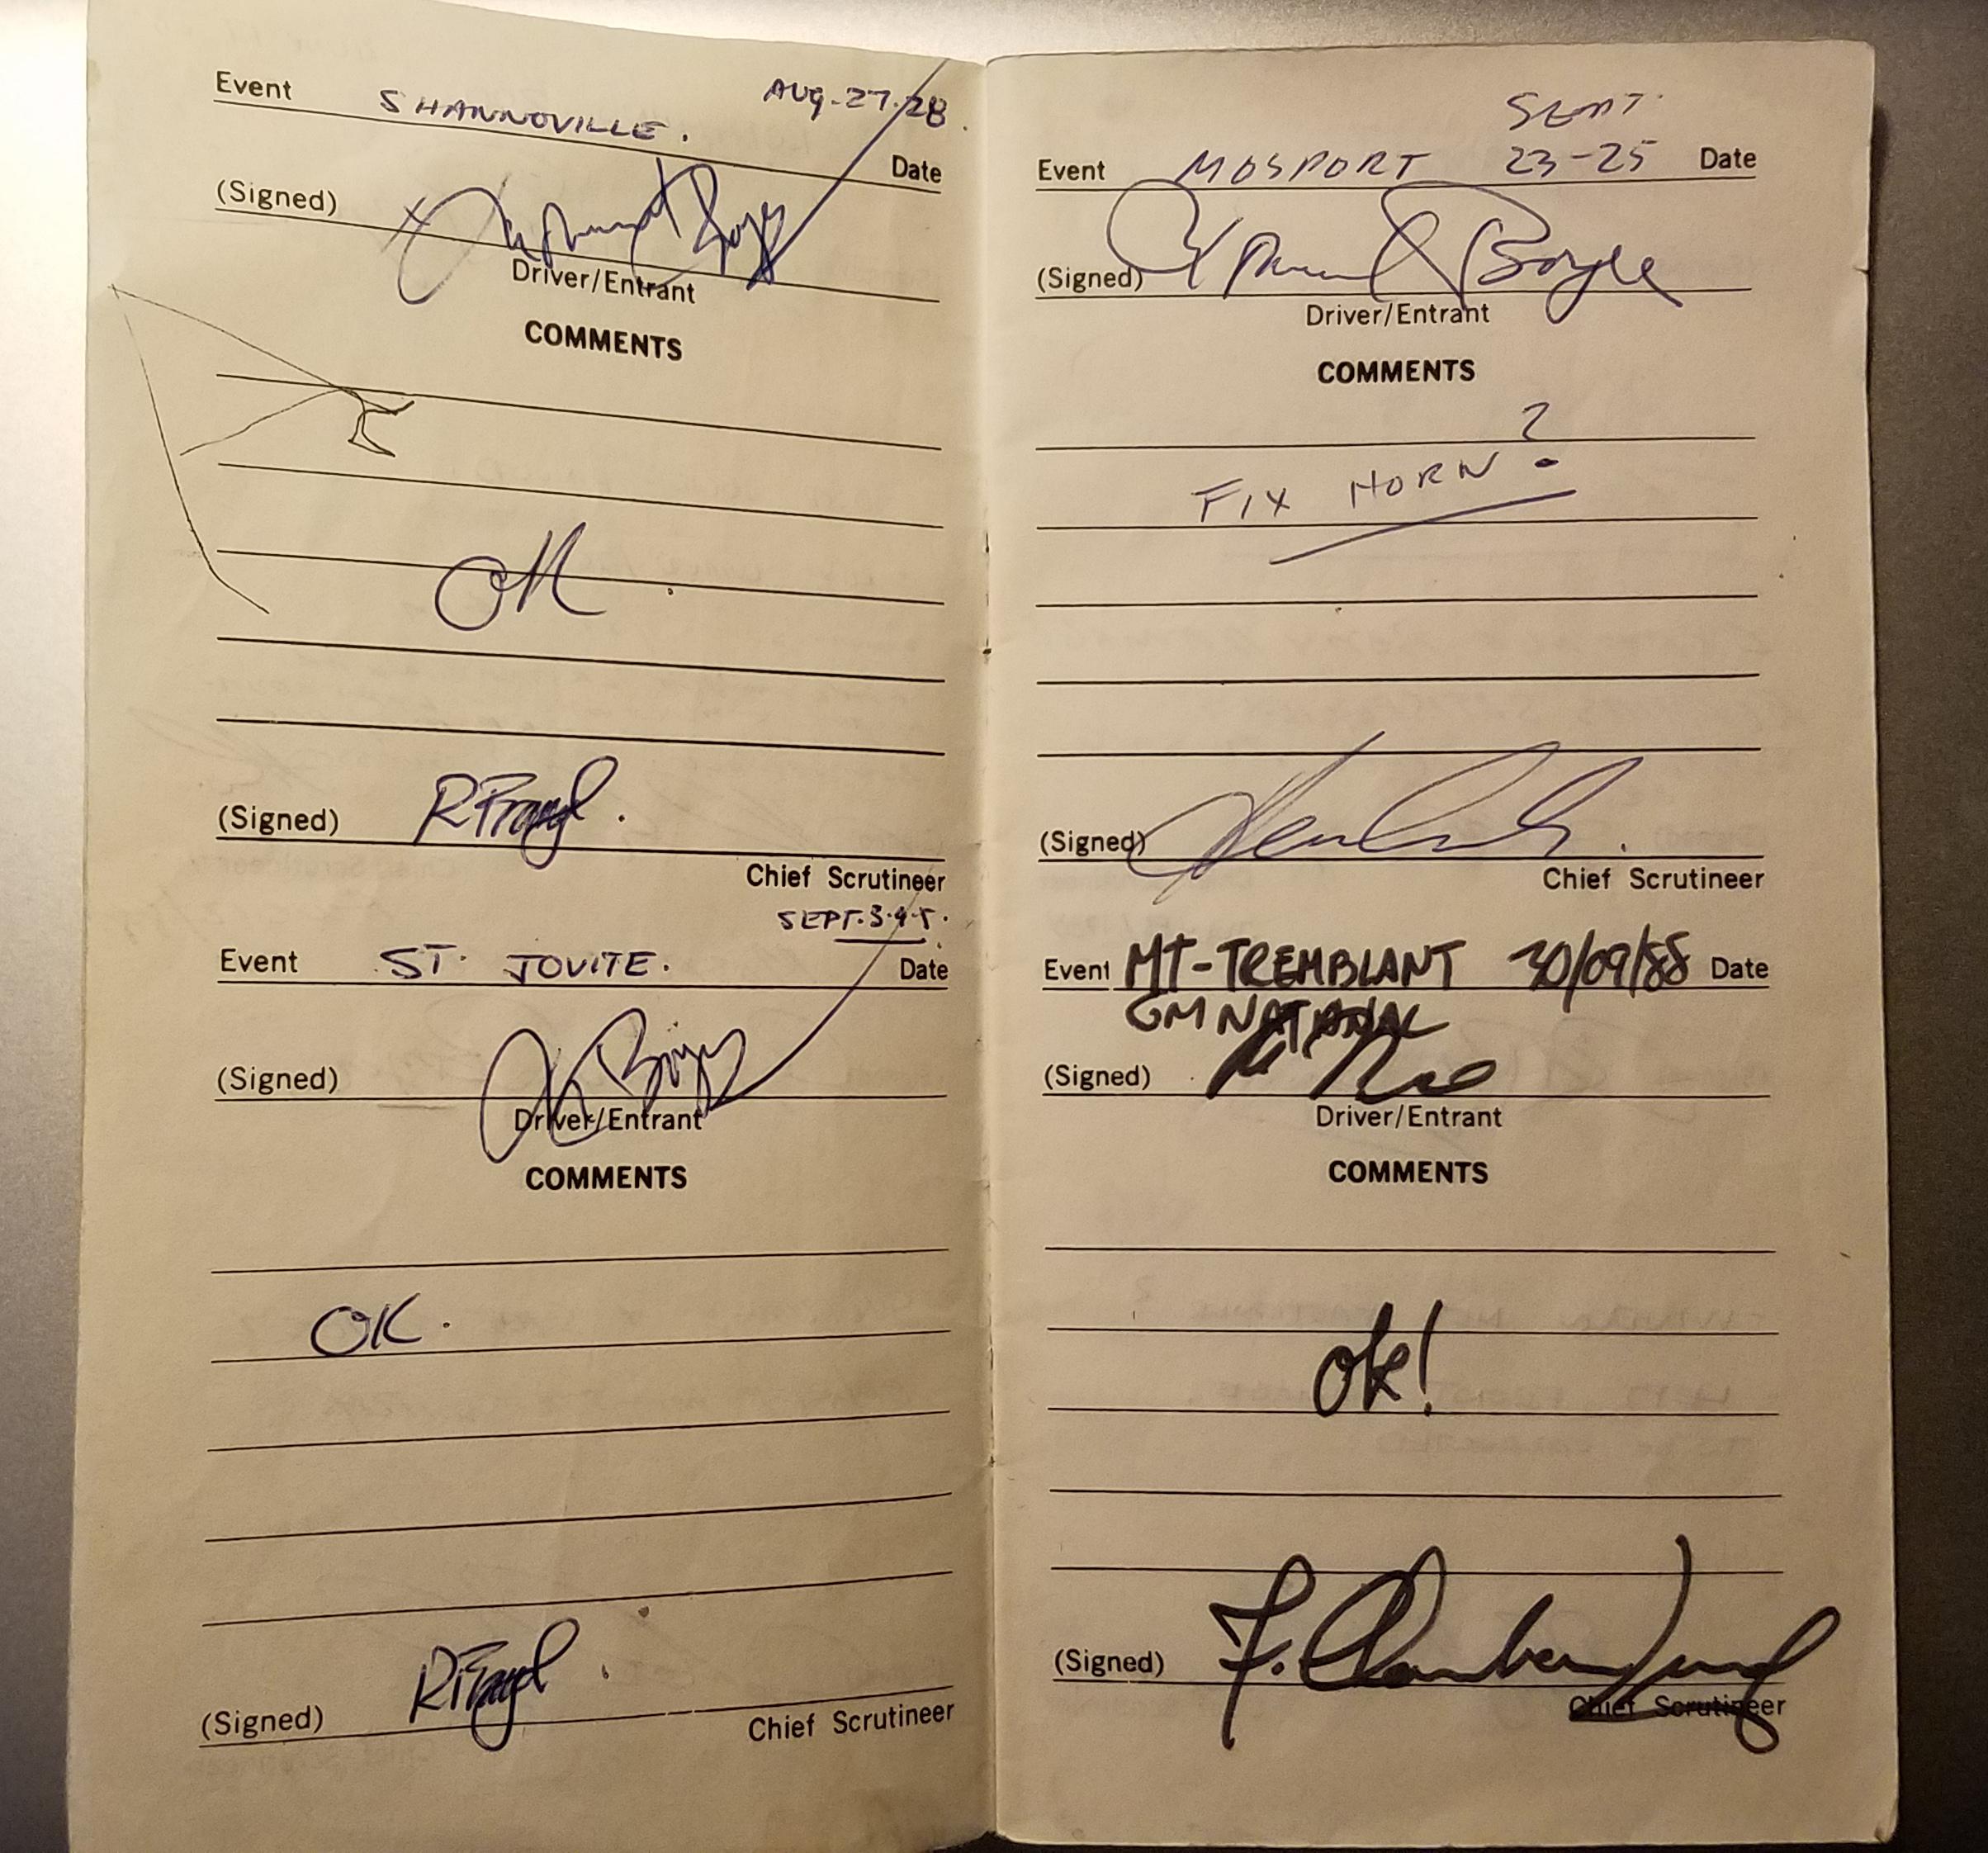 Event SHANNOVILLE. AUG.27.28.
Date
(Signed)
Driver/Entrant
COMMENTS
OK
(Signed)
Chief Scrutineer
SEPT.3.4.5.
Event ST. JOVITE. Date
(Signed)
Driver/Entrant
COMMENTS
OK.
(Signed)
Chief Scrutineer
SEPT.
Event MOSPORT 23-25 Date
(Signed) Boyle
Driver/Entrant
COMMENTS
FIX HORN?
(Signed)
Chief Scrutineer
Event MT-TREMBLANT 30/09/88 Date
GM NATIONAL
(Signed)
Driver/Entrant
COMMENTS
ok!
(Signed) F.
Chief Scrutineer